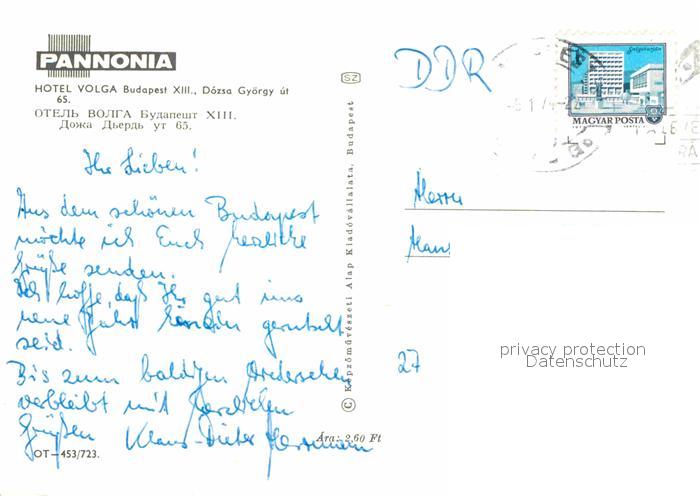 PANNONIA
HOTEL VOLGA Budapest XIII., Dózsa György út
65.
ОТЕЛЬ ВОЛГА Будапешт XIII.
Дожа Дьердь ут 65.
Ihr Lieben!
Aus dem schönen Budapest
möchte ich Euch herzliche
Grüße senden.
Ich hoffe, daß Ihr gut ins
neue Jahr gerutscht
seid.
Bis zum baldigen Wiedersehen
verbleibt mit herzlichen
Grüßen Klaus-Dieter Herrmann
OT—453/723.
Ára: 2,60 Ft
SZ
© Képzőművészeti Alap Kiadóvállalata, Budapest
DDR
Salgótarján
MAGYAR POSTA
Herrn
Hans
27
privacy protection
Datenschutz